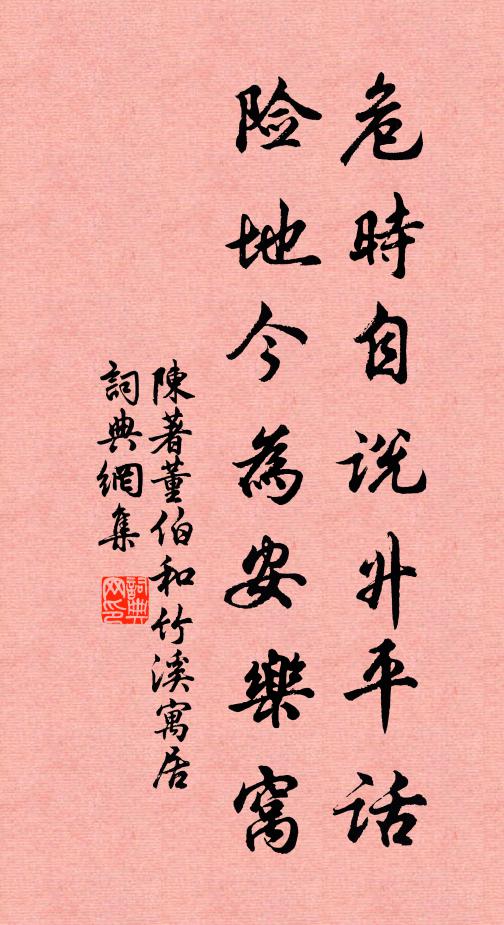 危時自说升平话
险地今為安樂窩
陳著董伯和竹溪寓居
詞典網集
詞典
网印